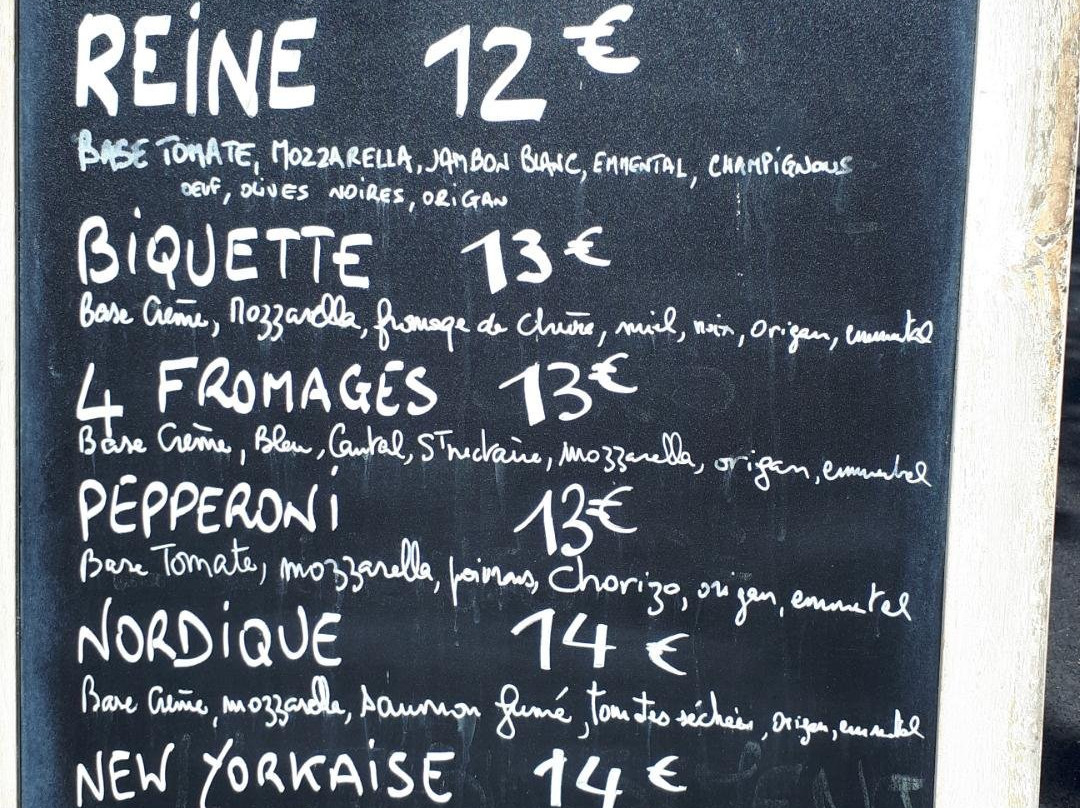 REINE 12€
BASE TOMATE, MOZZARELLA, JAMBON BLANC, EMMENTAL, CHAMPIGNONS
OEUF, OLIVES NOIRES, ORIGAN
BIQUETTE 13€
Base Crème, Mozzarella, fromage de Chèvre, miel, noix, origan, emmental
4 FROMAGES 13€
Base Crème, Bleu, Cantal, St nectaire, mozzarella, origan, emmental
PEPPERONI 13€
Base Tomate, mozzarella, poivrons, Chorizo, origan, emmental
NORDIQUE 14€
Base Crème, mozzarella, saumon fumé, tomates séchées, origan, emmental
NEW YORKAISE 14€